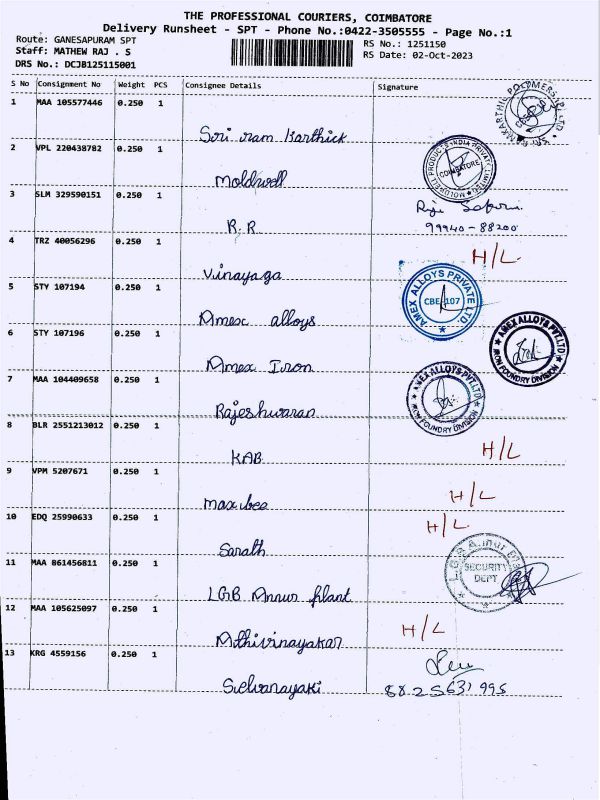 THE PROFESSIONAL COURIERS, COIMBATORE
Delivery Runsheet - SPT - Phone No.:0422-3505555 - Page No.:1
Route: GANESAPURAM SPT
Staff: MATHEW RAJ . S
DRS No.: DCJB125115001
RS No.: 1251150
RS Date: 02-Oct-2023
S No Consignment No Weight PCS Consignee Details Signature
1 MAA 105577446 0.250 1
Sri ram karthick
2 VPL 220438782 0.250 1
Moldwell
MOLDWELL PRODUCTS INDIA PRIVATE LIMITED
COIMBATORE
3 SLM 329590151 0.250 1
R.R
99940-88200
4 TRZ 40056296 0.250 1
H/L
Vinayaga
5 STY 107194 0.250 1
Amex alloys
AMEX ALLOYS PRIVATE LTD.
CBE-107
6 STY 107196 0.250 1
Amex Iron
AMEX ALLOYS PVT.LTD
IRON FOUNDRY DIVISION
7 MAA 104409658 0.250 1
Rajeshwaran
AMEX ALLOYS PVT.LTD
IRON FOUNDRY DIVISION
8 BLR 2551213012 0.250 1
KAB
H/L
9 VPM 5207671 0.250 1
maxibee
H/L
10 EDQ 25990633 0.250 1
H/L
Sarath
11 MAA 861456811 0.250 1
LGB Annur plant
SECURITY
DEPT
12 MAA 105625097 0.250 1
H/L
Athivinayakar
13 KRG 4559156 0.250 1
Selvanayaki
8825631995